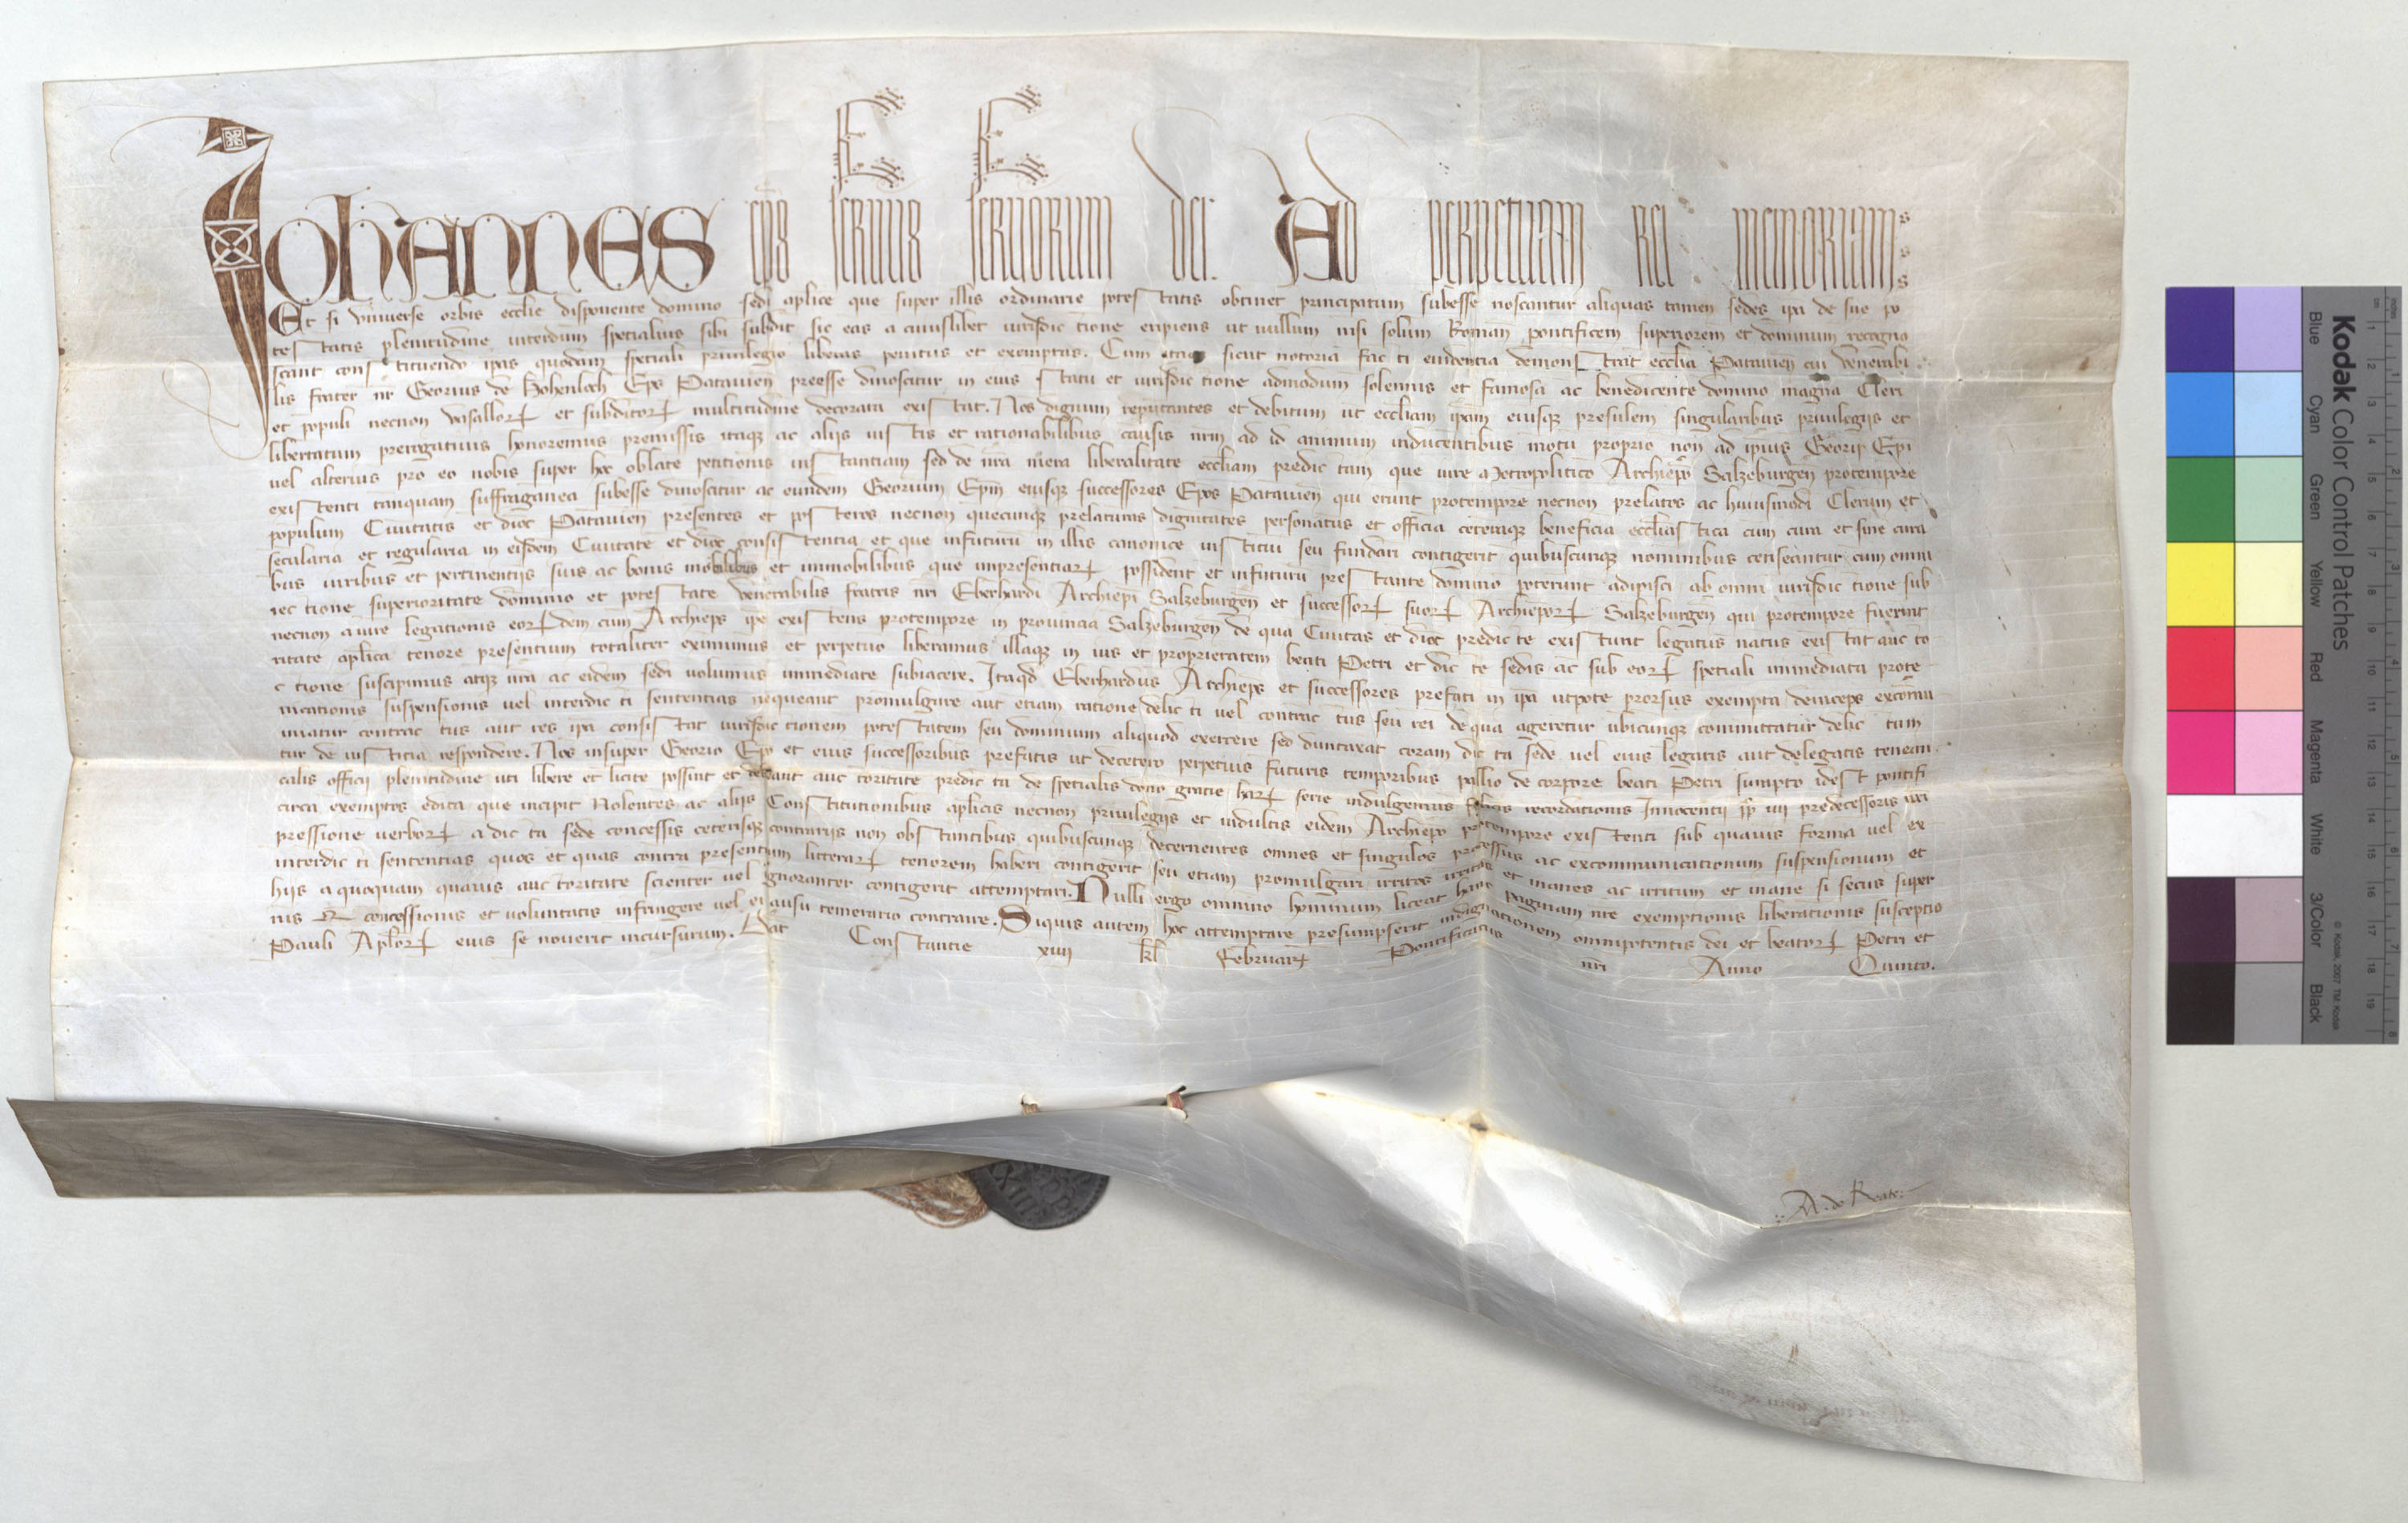 Iohannes ep̄s seruus seruorum dei. Ad perpetuam rei memoriam
Et si vniuerse orbis ecclie disponente domino sedi aplice que super illis ordinarie potestatis obtinet principatum subesse noscantur aliquas tamen sedes ipa de sue po
testatis plenitudine interdum specialius sibi subdit sic eas a cuiuslibet iurisdictione eripiens ut nullum nisi solum Roman pontificem superiorem et dominum recogno
scant constituendo ipas quodam speciali priuilegio liberas penitus et exemptas. Cum itaq sicut notoria facti euidentia demonstrat ecclia Patauien cui venerabi
lis frater nr Georius de Hohenloch Eps Patauien preesse dinoscitur in eius statu et iurisdictione admodum solennis et famosa ac benedicente domino magna Cleri
et populi necnon vasalloꝝ et subditoꝝ multitudine decorata existat. Nos dignum reputantes et debitum ut eccliam ipam eiusqꝫ presulem singularibus priuilegijs et
libertatum prerogatiuis honoremus premissis itaqꝫ ac alijs iustis et rationabilibus causis nrm ad id animum inducentibus motu proprio non ad ipius Georij Epi
uel alterius pro eo nobis super hoc oblate petitionis instantiam sed de nra mera liberalitate eccliam predictam que iure Metropolitico Archiepo Salzeburgen protempore
existenti tanquam suffraganea subesse dinoscitur ac eundem Georium Epm eiusqꝫ successores Epos Patauien qui erunt protempore necnon prelatos ac huiusmodi Clerum et
populum Ciuitatis et dioc Patauien presentes et posteros necnon quecunqꝫ prelaturas dignitates personatus et officia ceteraqꝫ beneficia ecclesiastica cum cura et sine cura
secularia et regularia in eisdem Ciuitate et dioc consistentia et que infuturu in illis canonice institui seu fundari contigerit quibuscunqꝫ nominibus censeantur cum omni
bus iuribus et pertinentijs suis ac bonis mobilibus et immobilibus que inpresentiaꝝ possident et infuturu prestante domino poterunt adipisci ab omni iurisdictione sub
iectione superioritate dominio et potestate venerabilis fratris nri Eberhardi Archiepi Salzeburgen et successoꝝ suoꝝ Archiepoꝝ Salzeburgen qui protempore fuerint
necnon a iure legationis eoꝝdem cum Archieps ipe existens protempore in prouincia Salzeburgen de qua Ciuitas et dioc predicte existunt legatus natus existat aucto
ritate aplica tenore presentium totaliter eximimus et perpetuo liberamus illaqꝫ in ius et proprietatem beati Petri et dicte sedis ac sub eoꝝ speciali immediata prote
ctione suscipimus atqꝫ nra ac eidem sedi volumus immediate subiacere. Itaqd Eberhardus Archieps et successores prefati in ipa utpote prorsus exempta deinceps excomu
nicationis suspensionis uel interdicti sententias nequeant promulgare aut etiam ratione delicti uel contractus seu rei de qua ageretur ubicunqꝫ committatur delictum
iniatur contractus aut res ipa consistat iurisdictionem potestatem seu dominium aliquod exercere sed duntaxat coram dicta sede uel eius legatis aut delegatis tenean
tur de iusticia respondere. Nos insuper Georio Epo et eius successoribus prefatis ut decetero perpetuis futuris temporibus pallio de corpore beati Petri sumpto idest pontifi
calis officij plenitudine uti libere et licite possint et debeant auctoritate predicta de specialis dono gratie haꝝ serie indulgemus felicis recordationis Innocentij pp iiij predecessoris nri
circa exemptos edita que incipit Nolentes ac alijs Constitutionibus aplicis necnon priuilegijs et indultis eidem Archiepo protempore existenti sub quauis forma uel ex
pressione uerboꝝ a dicta sede concessis ceterisqꝫ contrarijs non obstantibus quibuscunqꝫ decernentes omnes et singulos processus ac excommunicationum suspensionum et
interdicti sententias quos et quas contra presentium litteraꝝ tenorem haberi contigerit seu etiam promulgari irritos irritos et inanes ac irritum et inane si secus super
hijs a quoquam quauis auctoritate scienter uel ignoranter contigerit attemptari. Nulli ergo omnino hominum liceat hanc paginam nre exemptionis liberationis susceptio
nis concessionis et voluntatis infringere uel ei ausu temerario contraire. Siquis autem hoc attemptare presumpserit indignationem omnipotentis dei et beatoꝝ Petri et
Pauli Aploꝝ eius se nouerit incursurum. Dat Constantie xiiij kl Februaꝝ Pontificatus nri Anno Quinto.
A. de Reate
Kodak Color Control Patches
Blue Cyan Green Yellow Red Magenta White 3/Color Black
© Kodak, 2007 TM: Kodak